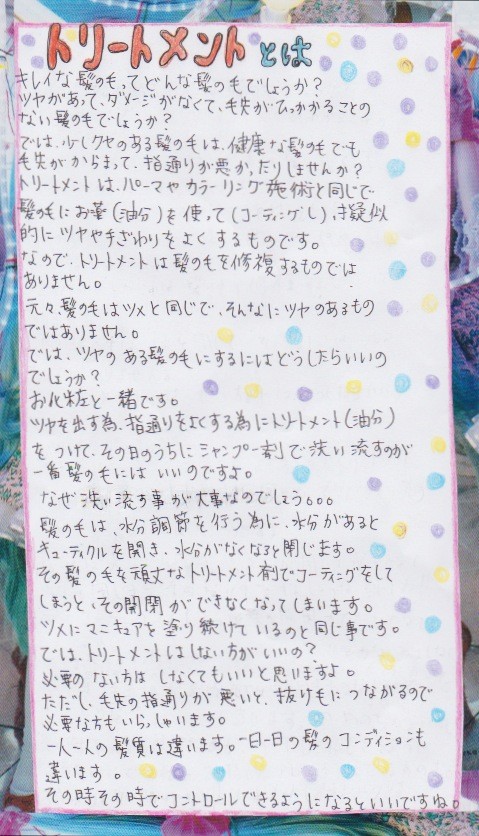 トリートメントとは
キレイな髪の毛ってどんな髪の毛でしょうか？
ツヤがあって、ダメージがなくて、毛先がひっかかることの
ない髪の毛でしょうか？
では、少しクセのある髪の毛は、健康な髪の毛でも
毛先がからまって、指通りが悪かったりしませんか？
トリートメントは、パーマやカラーリング施術と同じで
髪の毛にお薬（油分）を使って（コーティングし）、擬似
的にツヤや手ざわりをよくするものです。
なので、トリートメントは髪の毛を修複するものでは
ありません。
元々、髪の毛はツメと同じで、そんなにツヤのあるもの
ではありません。
では、ツヤのある髪の毛にするにはどうしたらいいの
でしょうか？
お化粧と一緒です。
ツヤを出す為、指通りをよくする為にトリートメント（油分）
をつけて、その日のうちにシャンプー剤で洗い流すのが
一番髪の毛にはいいのですよ。
なぜ洗い流す事が大事なのでしょう。。。
髪の毛は、水分調節を行う為に、水分があると
キューティクルを開き、水分がなくなると閉じます。
その髪の毛を頑丈なトリートメント剤でコーティングをして
しまうと、その開閉ができなくなってしまいます。
ツメにマニキュアを塗り続けているのと同じ事です。
では、トリートメントはしない方がいいの？
必要のない方はしなくてもいいと思いますよ。
ただし、毛先の指通りが悪いと、抜け毛につながるので
必要な方もいらっしゃいます。
一人一人の髪質は違います。一日一日の髪のコンディションも
違います。
その時その時でコントロールできるようになるといいですね。